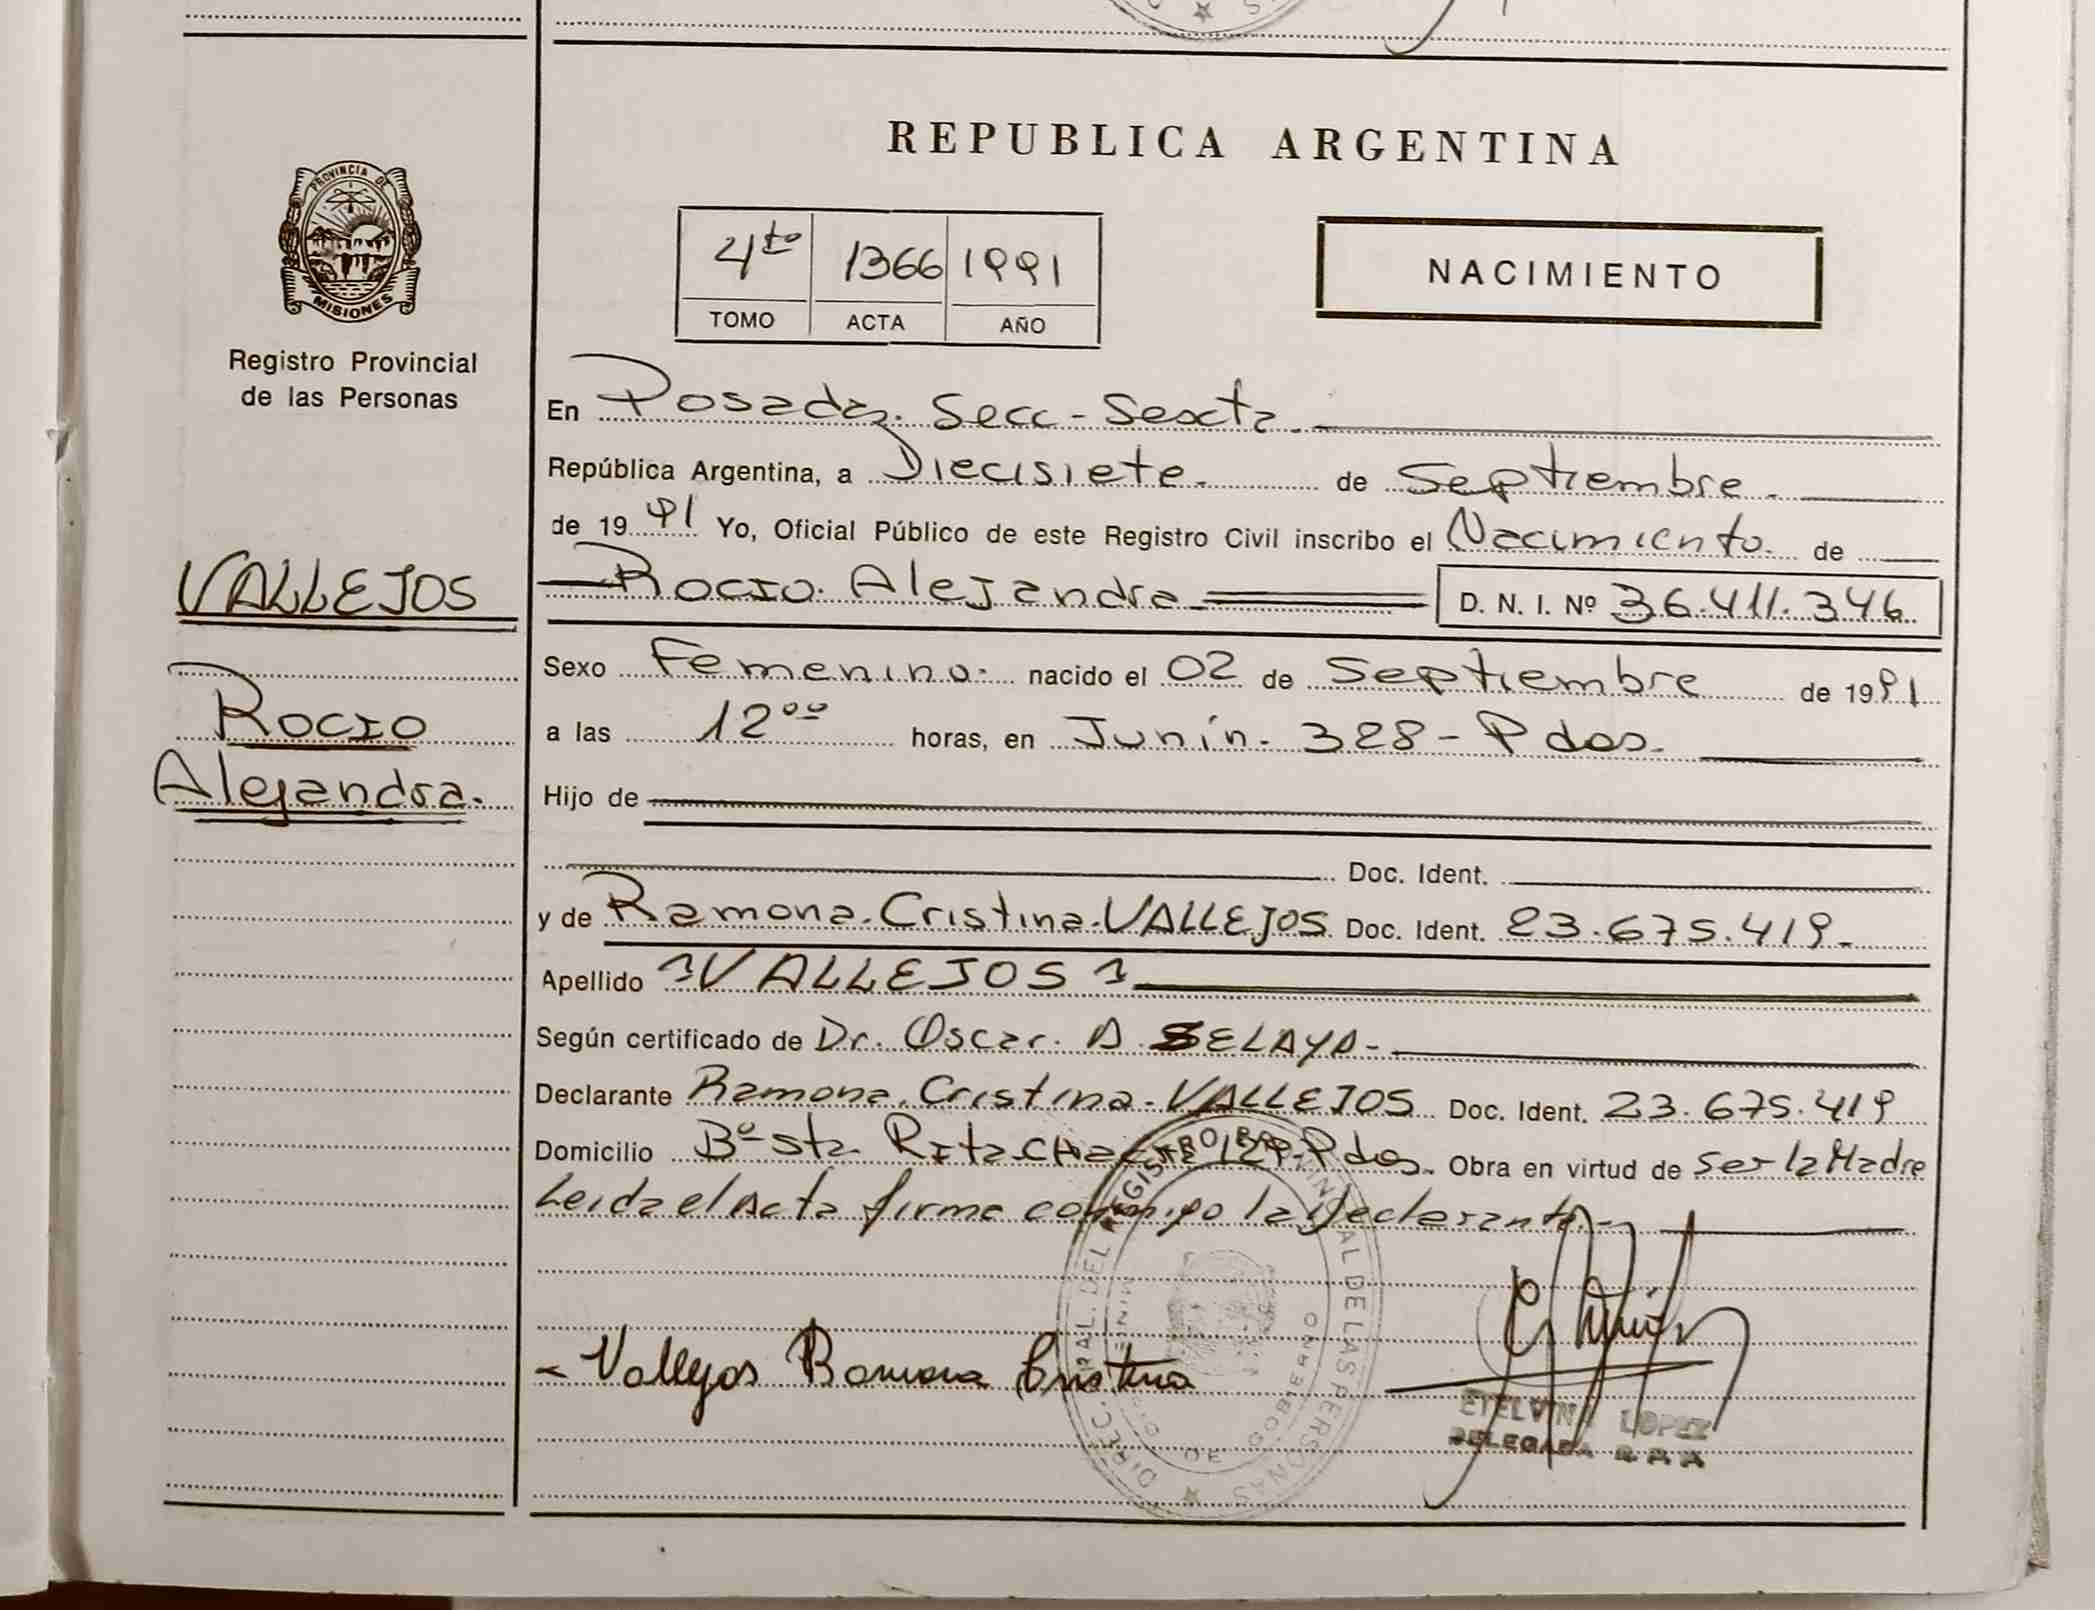 REPUBLICA ARGENTINA
PROVINCIA DE
MISIONES
Registro Provincial
de las Personas
4to 1366 1991
TOMO ACTA AÑO
NACIMIENTO
En Posadas. Secc - Sexta.
República Argentina, a Diecisiete. de Septiembre.
de 1991 Yo, Oficial Público de este Registro Civil inscribo el Nacimiento. de
VALLEJOS
Rocio. Alejandra D. N. I. Nº 36.411.346
Sexo Femenino. nacido el 02 de Septiembre de 1991
Rocio
a las 12 00 horas, en Junín. 328 - Pdas.
Alejandra.
Hijo de
Doc. Ident.
y de Ramona. Cristina. VALLEJOS. Doc. Ident. 23.675.419.
Apellido VALLEJOS
Según certificado de Dr. Oscar. A. SELAYA -
Declarante Ramona. Cristina. VALLEJOS Doc. Ident. 23.675.419
Domicilio Bº Sta. Rita Pdas. Obra en virtud de Ser la Madre
Leida el Acta firma conmigo la declarante. -
- Vallejos Ramona Cristina
DIREC. GRAL. DEL REGISTRO PROVINCIAL DE LAS PERSONAS
DE GOBIERNO
ETELVINA LOPEZ
DELEGADA